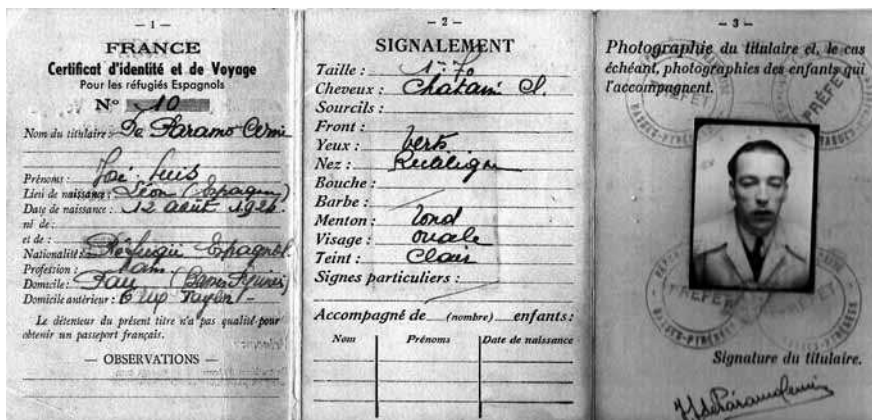 — 1 —
FRANCE
Certificat d'identité et de Voyage
Pour les réfugiés Espagnols
N° 10
Nom du titulaire : De Paramo
Prénoms : José Luis
Lieu de naissance : Léon (Espagne)
Date de naissance : 12 août 1926
ni de :
et de :
Nationalité : Réfugié Espagnol
Profession :
Domicile : Pau
Domicile antérieur :
Le détenteur du présent titre n'a pas qualité pour
obtenir un passeport français.
— OBSERVATIONS —
— 2 —
SIGNALEMENT
Taille : 1m70
Cheveux : Chatain Cl.
Sourcils :
Front :
Yeux : Verts
Nez : Rectiligne
Bouche :
Barbe :
Menton : rond
Visage : ovale
Teint : Clair
Signes particuliers :
Accompagné de (nombre) enfants :
Nom Prénoms Date de naissance
— 3 —
Photographie du titulaire et, le cas
échéant, photographies des enfants qui
l'accompagnent.
PRÉFET
BASSES-PYRÉNÉES
Signature du titulaire.